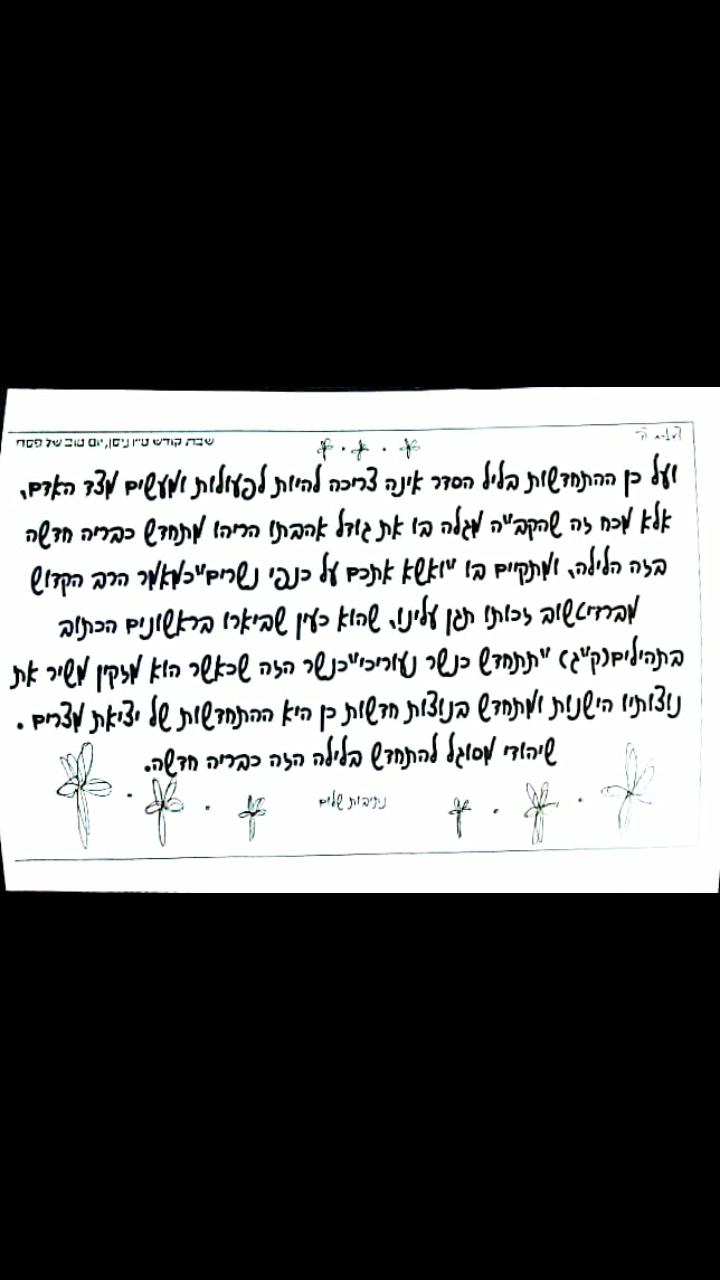 שבת קודש ט״ו ניסן, יום טוב של פסח
ועל כן ההתחדשות בליל הסדר אינה צריכה להיות לפעולות ומעשים מצד האדם,
אלא מכח זה שהקב״ה מגלה בו את גודל אהבתו הריהו מתחדש כבריה חדשה
בזה הלילה, ומתקיים בו "ואשא אתכם על כנפי נשרים" כמאמר הרב הקדוש
מברדיטשוב זכותו תגן עלינו, שהוא כעין שביארו בראשונים הכתוב
בתהילים (ק״ג) "תתחדש כנשר נעוריכי" כנשר הזה שכאשר הוא מזקין משיר את
נוצותיו הישנות ומתחדש בנוצות חדשות כן היא ההתחדשות של יציאת מצרים .
שיהודי מסוגל להתחדש בלילה הזה כבריה חדשה.
נתיבות שלום